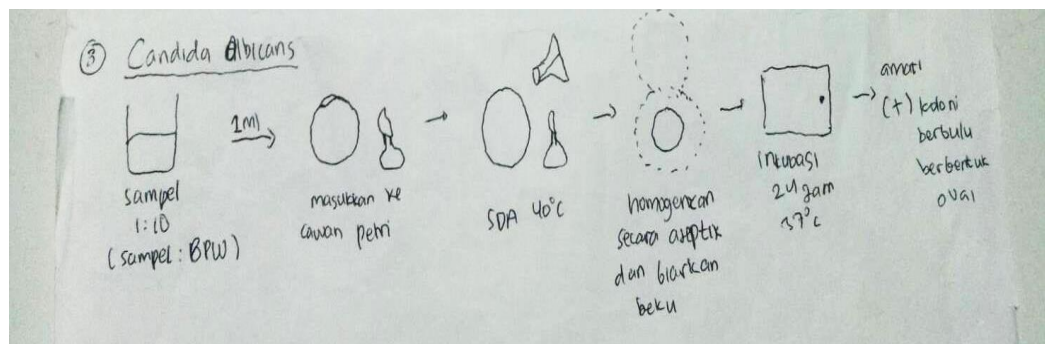 ③ Candida Albicans
sampel
1:10
(sampel : BPW)
1 ml
masukkan ke
cawan petri
SDA 40°C
homogenkan
secara aseptik
dan biarkan
beku
inkubasi
24 jam
37°C
amati
(+) koloni
berbulu
berbentuk
oval